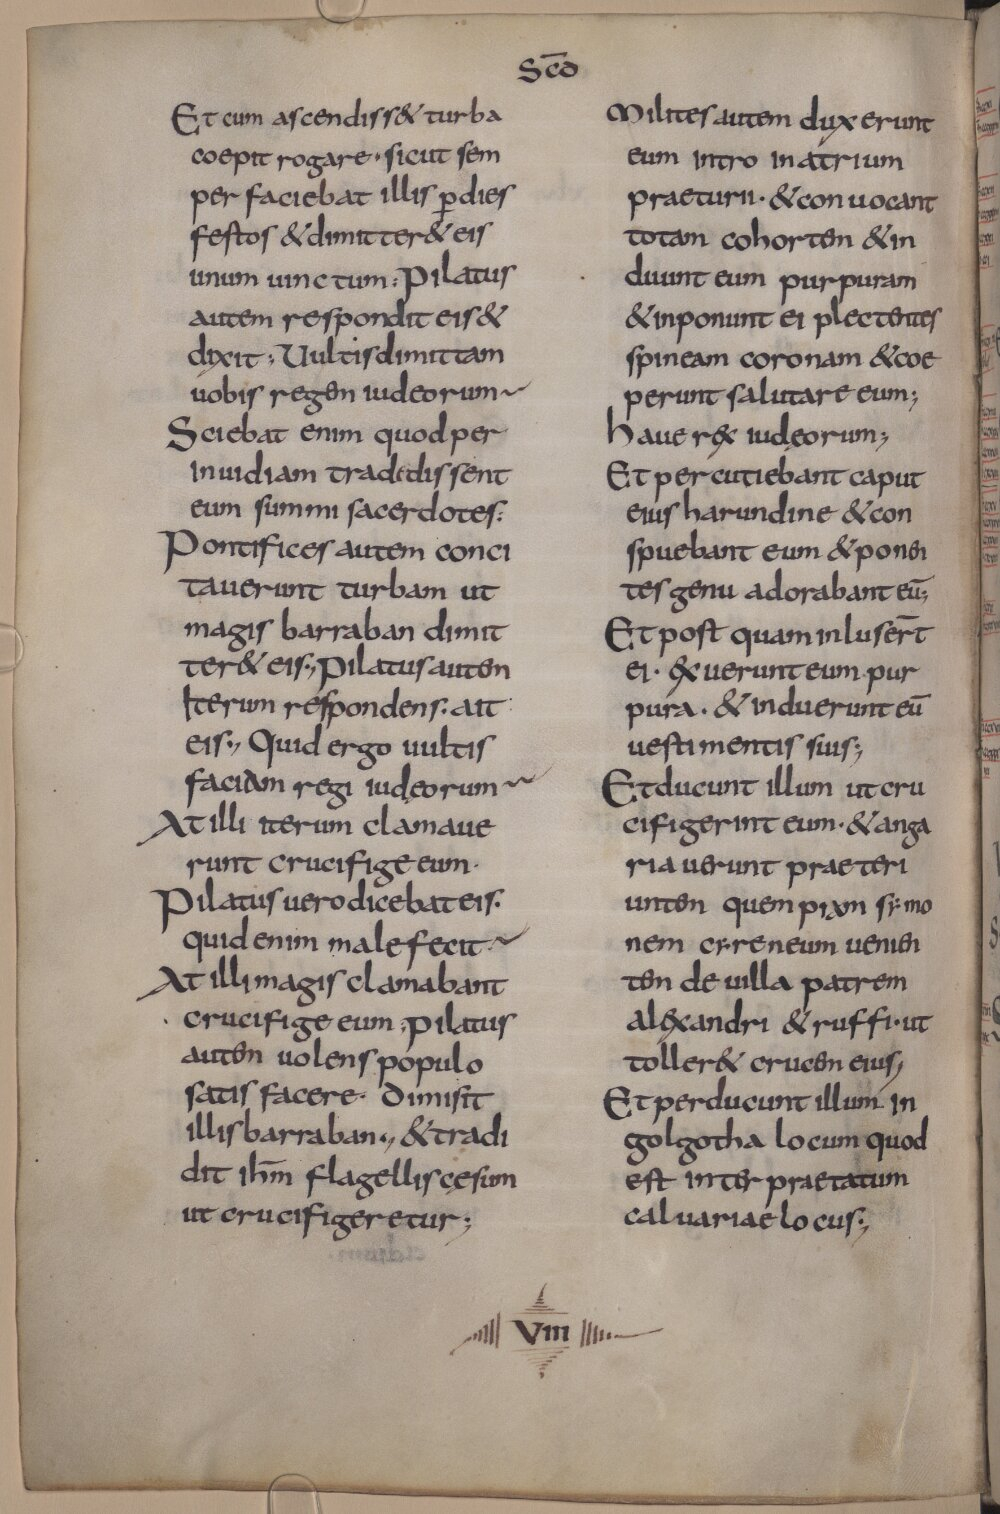 Scd̄
Et cum ascendiss& turba
coepit rogare· sicut sem
per faciebat illis p̱dies
festos &dimitter& eis
unum uinctum; Pilatus
autem respondit eis &
dixit; Uultis dimittam
uobis regem iudeorum~
Sciebat enim quod per
inuidiam tradedissent
eum summi sacerdotes;
Pontifices autem conci
tauerunt turbam ut
magis barraban dimit
ter& eis; Pilatus autem
Iterum respondens· ait
eis; Quid ergo uultis
faciam regi iudeorum~
At illi iterum clamaue
runt crucifige eum·
Pilatus uero dicebat eis·
quid enim male fecit~
At illi magis clamabant
crucifige eum; Pilatus
autem uolens populo
satis facere· Dimisit
illis barraban; &tradi
dit ihm̄ flagellis cęsum
ut crucifigeretur;
Milites autem duxerunt
eum intro in atrium
praeturii· &conuocant
totam cohortem &in
duunt eum purpuram
&inponunt ei plectentes
spineam coronam &coe
perunt salutare eum;
haue rex iudęorum;
Et percutiebant caput
eius harundine &con
spuebant eum &ponen
tes genu adorabant eū;
Et post quam inluser̄t
ei· exuerunt eum pur
pura· &induerunt eū
uestimentis suis;
Et ducunt illum ut cru
cifigerint eum· &anga
riauerunt praeteri
untem quempiam symo
nem cyreneum uenien
tem de uilla patrem
alexandri &ruffi· ut
toller& crucem eius;
Et perducunt illum in
golgotha locum quod
est interpraetatum
caluariae locus;
VIII